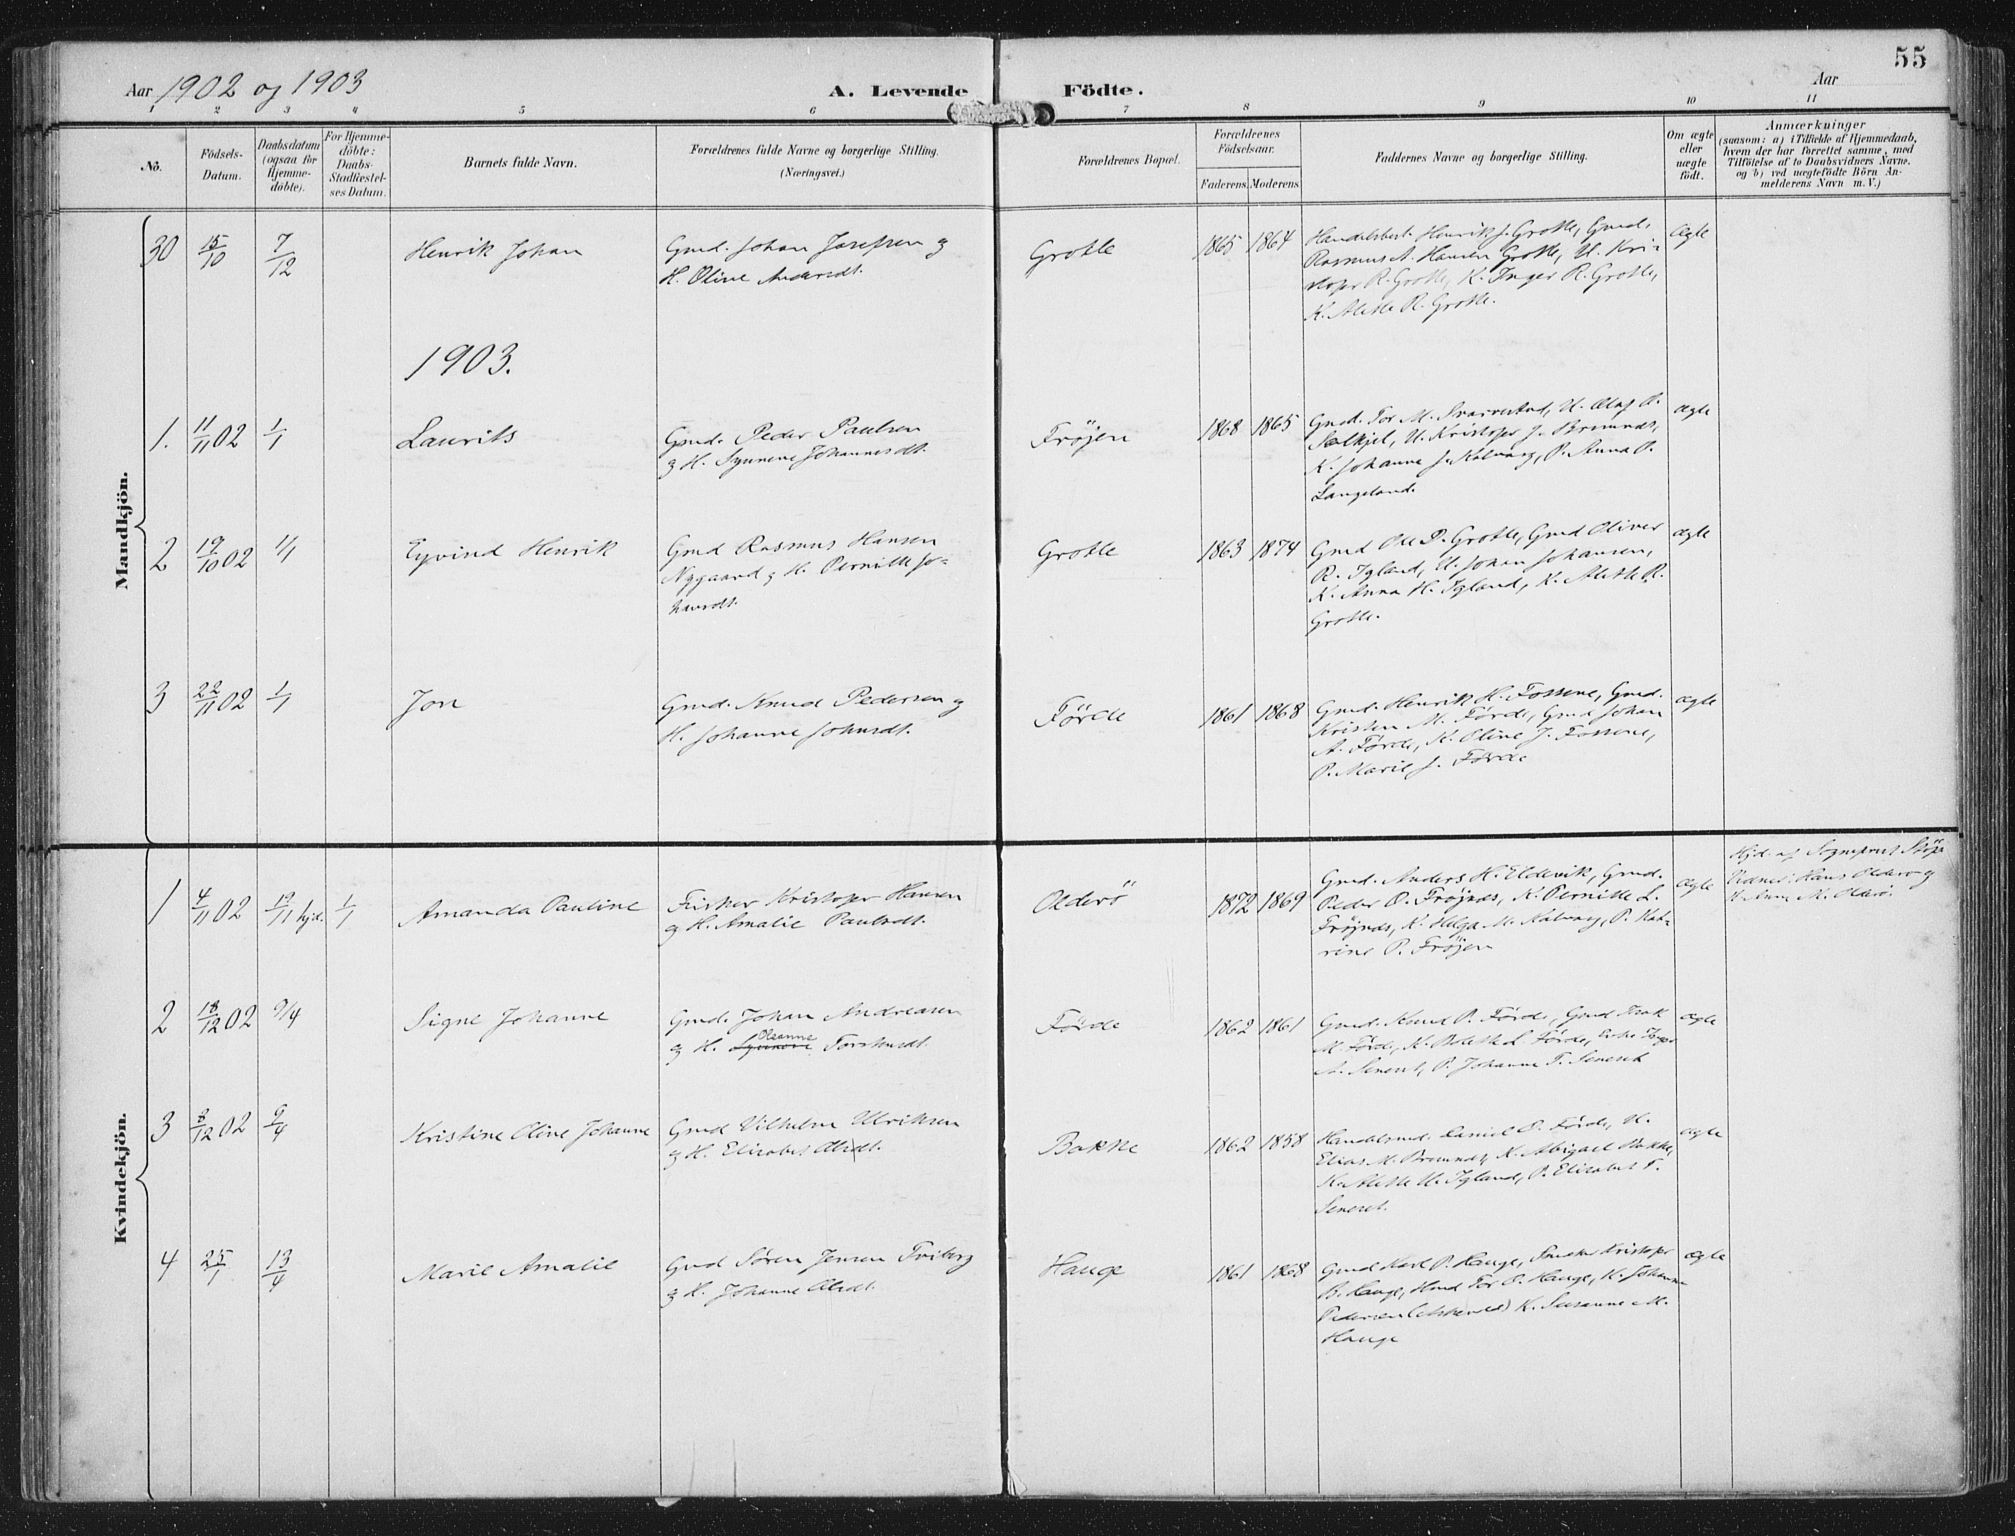 55
Aar 1902 og 1903
A. Levende Födte.
Aar
1 2 3 4 5 6 7 8 9 10 11
No.
Födsels-
Datum.
Daabsdatum
(ogsaa for
Hjemme-
döbte).
For Hjemme-
döbte:
Daabs-
Stadfæstel-
ses Datum.
Barnets fulde Navn.
Forældrenes fulde Navne og borgerlige Stilling.
(Næringsvei.)
Forældrenes Bopæl.
Forældrenes
Födselsaar.
Faderens. Moderens
Faddernes Navne og borgerlige Stilling.
Om ægte
eller
uægte
födt.
Anmærkninger
(saasom: a) i Tilfælde af Hjemmedaab,
hvem der har forrettet samme, med
Tilföielse af to Daabsvidners Navne.
og b) ved uægtefödte Börn An-
melderens Navn m. V.)
Mandkjön.
30 15/10 7/12 Henrik Johan
Gmd. Johan Josefsen og
H. Oline Andersdt.
Grotle 1865 1864
Handelsbest. Henrik J. Grotle, Gmd.
Rasmus A. Hansen Grotle, U. Kri-
stofer R. Grotle, K. Inger R. Grotle,
K. Alette R. Grotle.
ægte
1903.
1. 11/11 02 1/1 Laurits
Gmd. Peder Paulsen
og H. Synneve Johannesdt.
Fröjen 1868 1865
Gmd. Tor M. U. Olaf A.
U. Kristofer J. Bremnes,
K. Johanne J. Kalvaag, P. Anna P.
Langeland.
ægte
2 19/10 02 1/1 Eyvind Henrik
Gmd Rasmus Hansen
Nygaard og H. Pernille Jo-
hansdt.
Grotle 1863 1874
Gmd Ole D. Grotle, Gmd Oliver
R. Igland, U. Johan Johansen,
K. Anna H. Igland, K. Alette R.
Grotle.
ægte
3 22/11 02 1/1 Jon
Gmd. Knud Pedersen og
H. Johanne Johnsdt.
Förde 1861 1868
Gmd. Henrik H. Fossene, Gmd.
Kristen M. Förde, Gmd Johan
A. Förde, K. Oline J. Fossene,
P. Marie J. Förde
ægte
Kvindekjön.
1 4/11 02 19/11 hjd. 1/1 Amanda Pauline
Fisker Kristofer Hansen
og H. Amalie Paulsdt.
Olderö 1872 1869
Gmd. Anders H. Eldevik, Gmd.
Peder O. Fröjnes, K. Pernille L.
Fröjnes, K. Helga M. Kalvaag, P. Kat-
rine P. Fröjen
ægte
Hjd. af Sogneprest
Vidner: Hans Olderö og
M. Olderö.
2 18/12 02 9/4 Signe Johanne
Gmd. Johan Andreasen
Oleanne
og H. Synneve
Förde 1862 1861
Gmd. Knud P. Förde, Gmd Isak
M. Förde, K. Bolette L Förde,
A. Seneset, P. Johanne T. Seneset
ægte
3 8/12 02 9/4 Kristine Oline Johanne
Gmd Vilhelm Ulriksen
og H. Elisabet Olsdt.
Bakke 1862 1858
Handelsmd. Daniel O. Förde, U.
Elias M. Bremnes, K. Abigael Bakke,
K. Alette U. Igland, P. Elisabet T.
Seneset.
ægte
4 25/1 13/4 Marie Amalie
Gmd Sören Jensen Tviberg
og H. Johanne Olsdt.
Hauge 1861 1868
Gmd Karl P. Hauge, Kristofer
B. Hauge, Tor O. Hauge, K. Johanne
Pedersen K. Susanne M.
Hauge
ægte